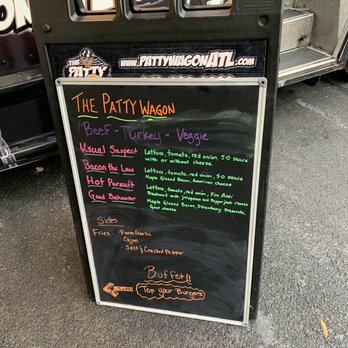 THE PATTY
www.PATTYWAGONATL.com
THE PATTY WAGON
Beef - Turkey - Veggie
Usual Suspect Lettuce, tomato, red onion, 5-0 sauce
with or without cheese
Bacon the Law Lettuce, tomato, red onion, 5-0 sauce
Maple Glazed Bacon, American cheese
Hot Pursuit Lettuce, tomato, red onion, Fire Aioli
Blackened with jalapenos and Pepperjack cheese
Good Behavior Maple Glazed Bacon, Strawberry Preserves,
Goat cheese
Sides
Fries: Parm Garlic
Salt & Cracked Pepper
Buffet!!
Top Your Burgers